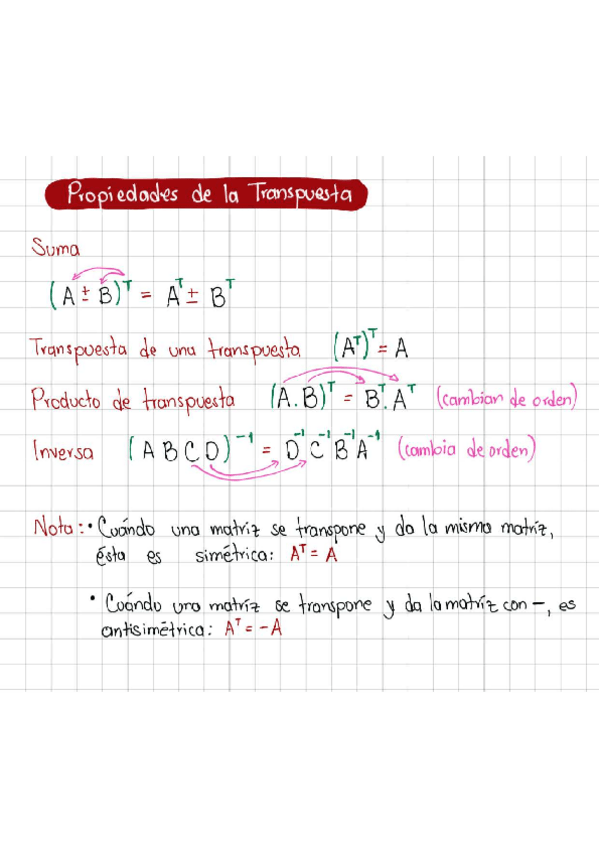 Propiedades de la Transpuesta
Suma
(A ± B)ᵀ = Aᵀ ± Bᵀ
Transpuesta de una transpuesta (Aᵀ)ᵀ = A
Producto de transpuesta (A.B)ᵀ = Bᵀ.Aᵀ (cambian de orden)
Inversa (A B C D)⁻¹ = D⁻¹ C⁻¹ B⁻¹ A⁻¹ (cambia de orden)
Nota: • Cuándo una matriz se transpone y da la misma matríz,
ésta es simétrica: Aᵀ = A
• Cuándo una matríz se transpone y da la matríz con –, es
antisimétrica: Aᵀ = –A